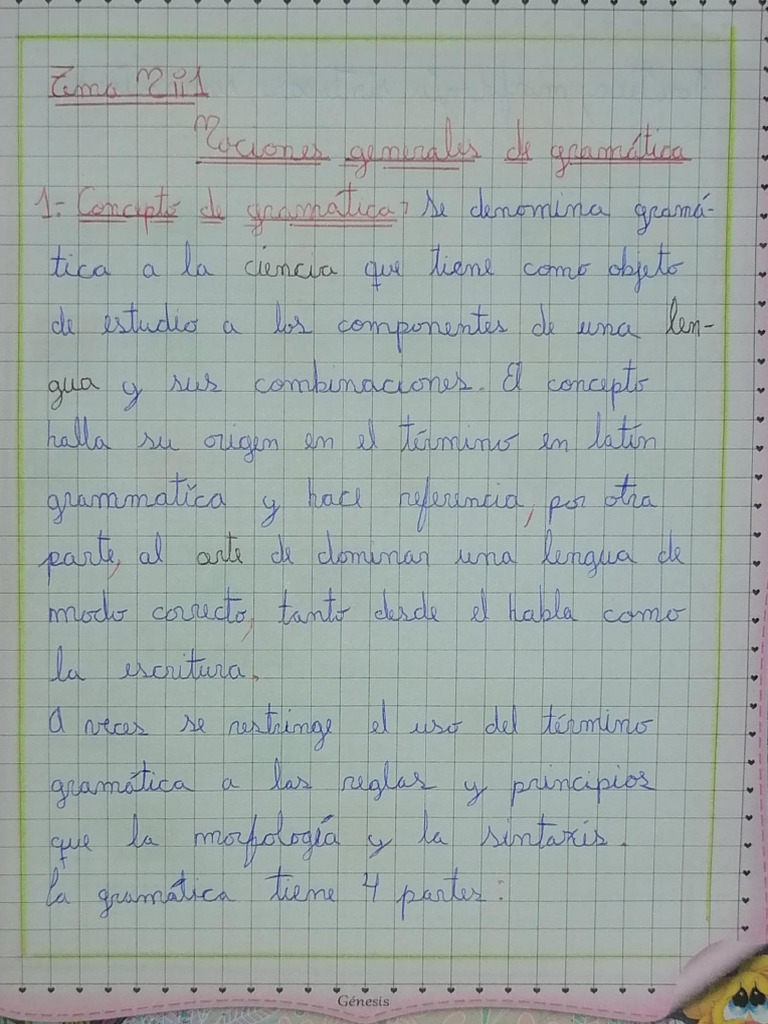 Tema Nº1
Nociones generales de gramática
1- Concepto de gramática: Se denomina gramá-
tica a la ciencia que tiene como objeto
de estudio a los componentes de una len-
gua y sus combinaciones. El concepto
halla su origen en el término en latín
grammatíca y hace referencia, por otra
parte, al arte de dominar una lengua de
modo correcto, tanto desde el habla como
la escritura.
A veces se restringe el uso del término
gramática a las reglas y principios
que la morfología y la sintaxis.
La gramática tiene 4 partes:
Génesis